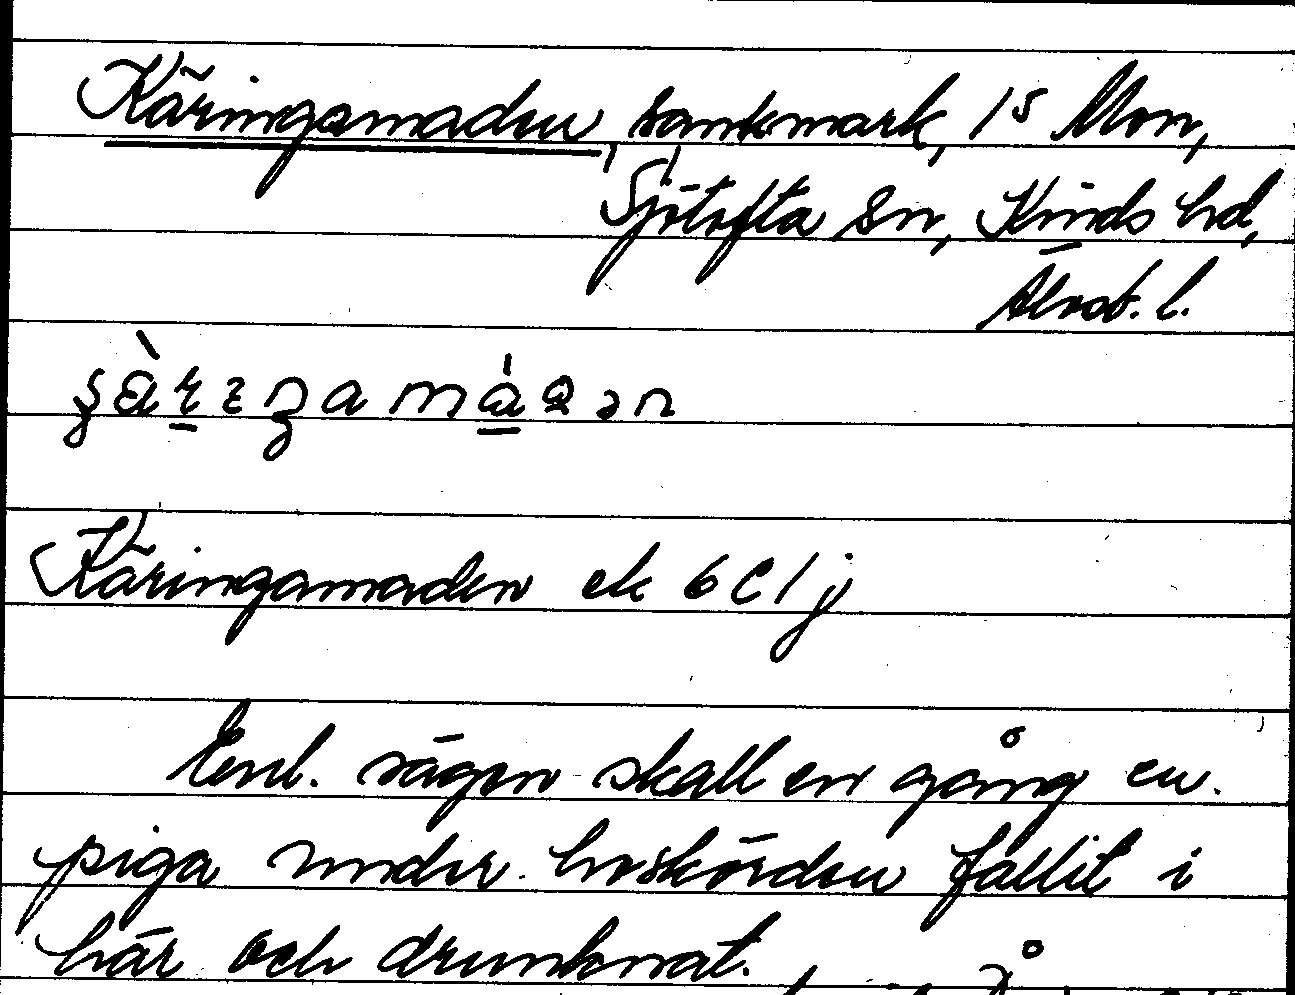 Käringamaden, sankmark, 1⁵ Mon,
Sjötofta sn, Kinds hd,
Älvsb. l.
Käringamaden ek 6C1j
Enl. sägen skall en gång en
piga under höskörden fallit i
här och drunknat.